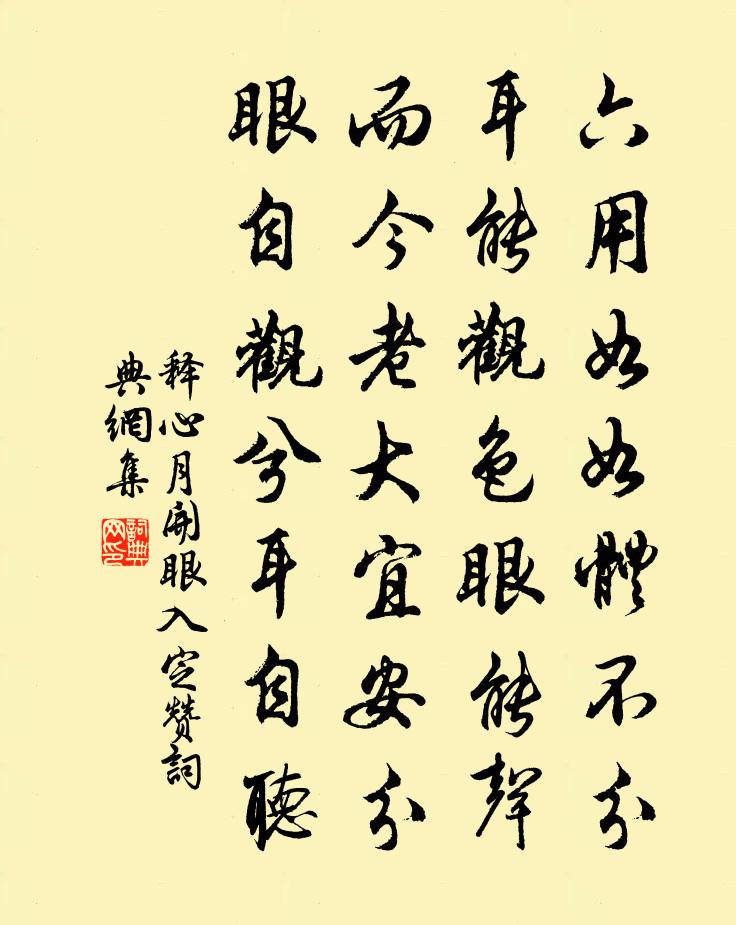 六用如如體不分
耳能觀色眼能聲
而今老大宜安分
眼自觀兮耳自聽
释心月開眼入定赞詞
典網集
詞典
网印